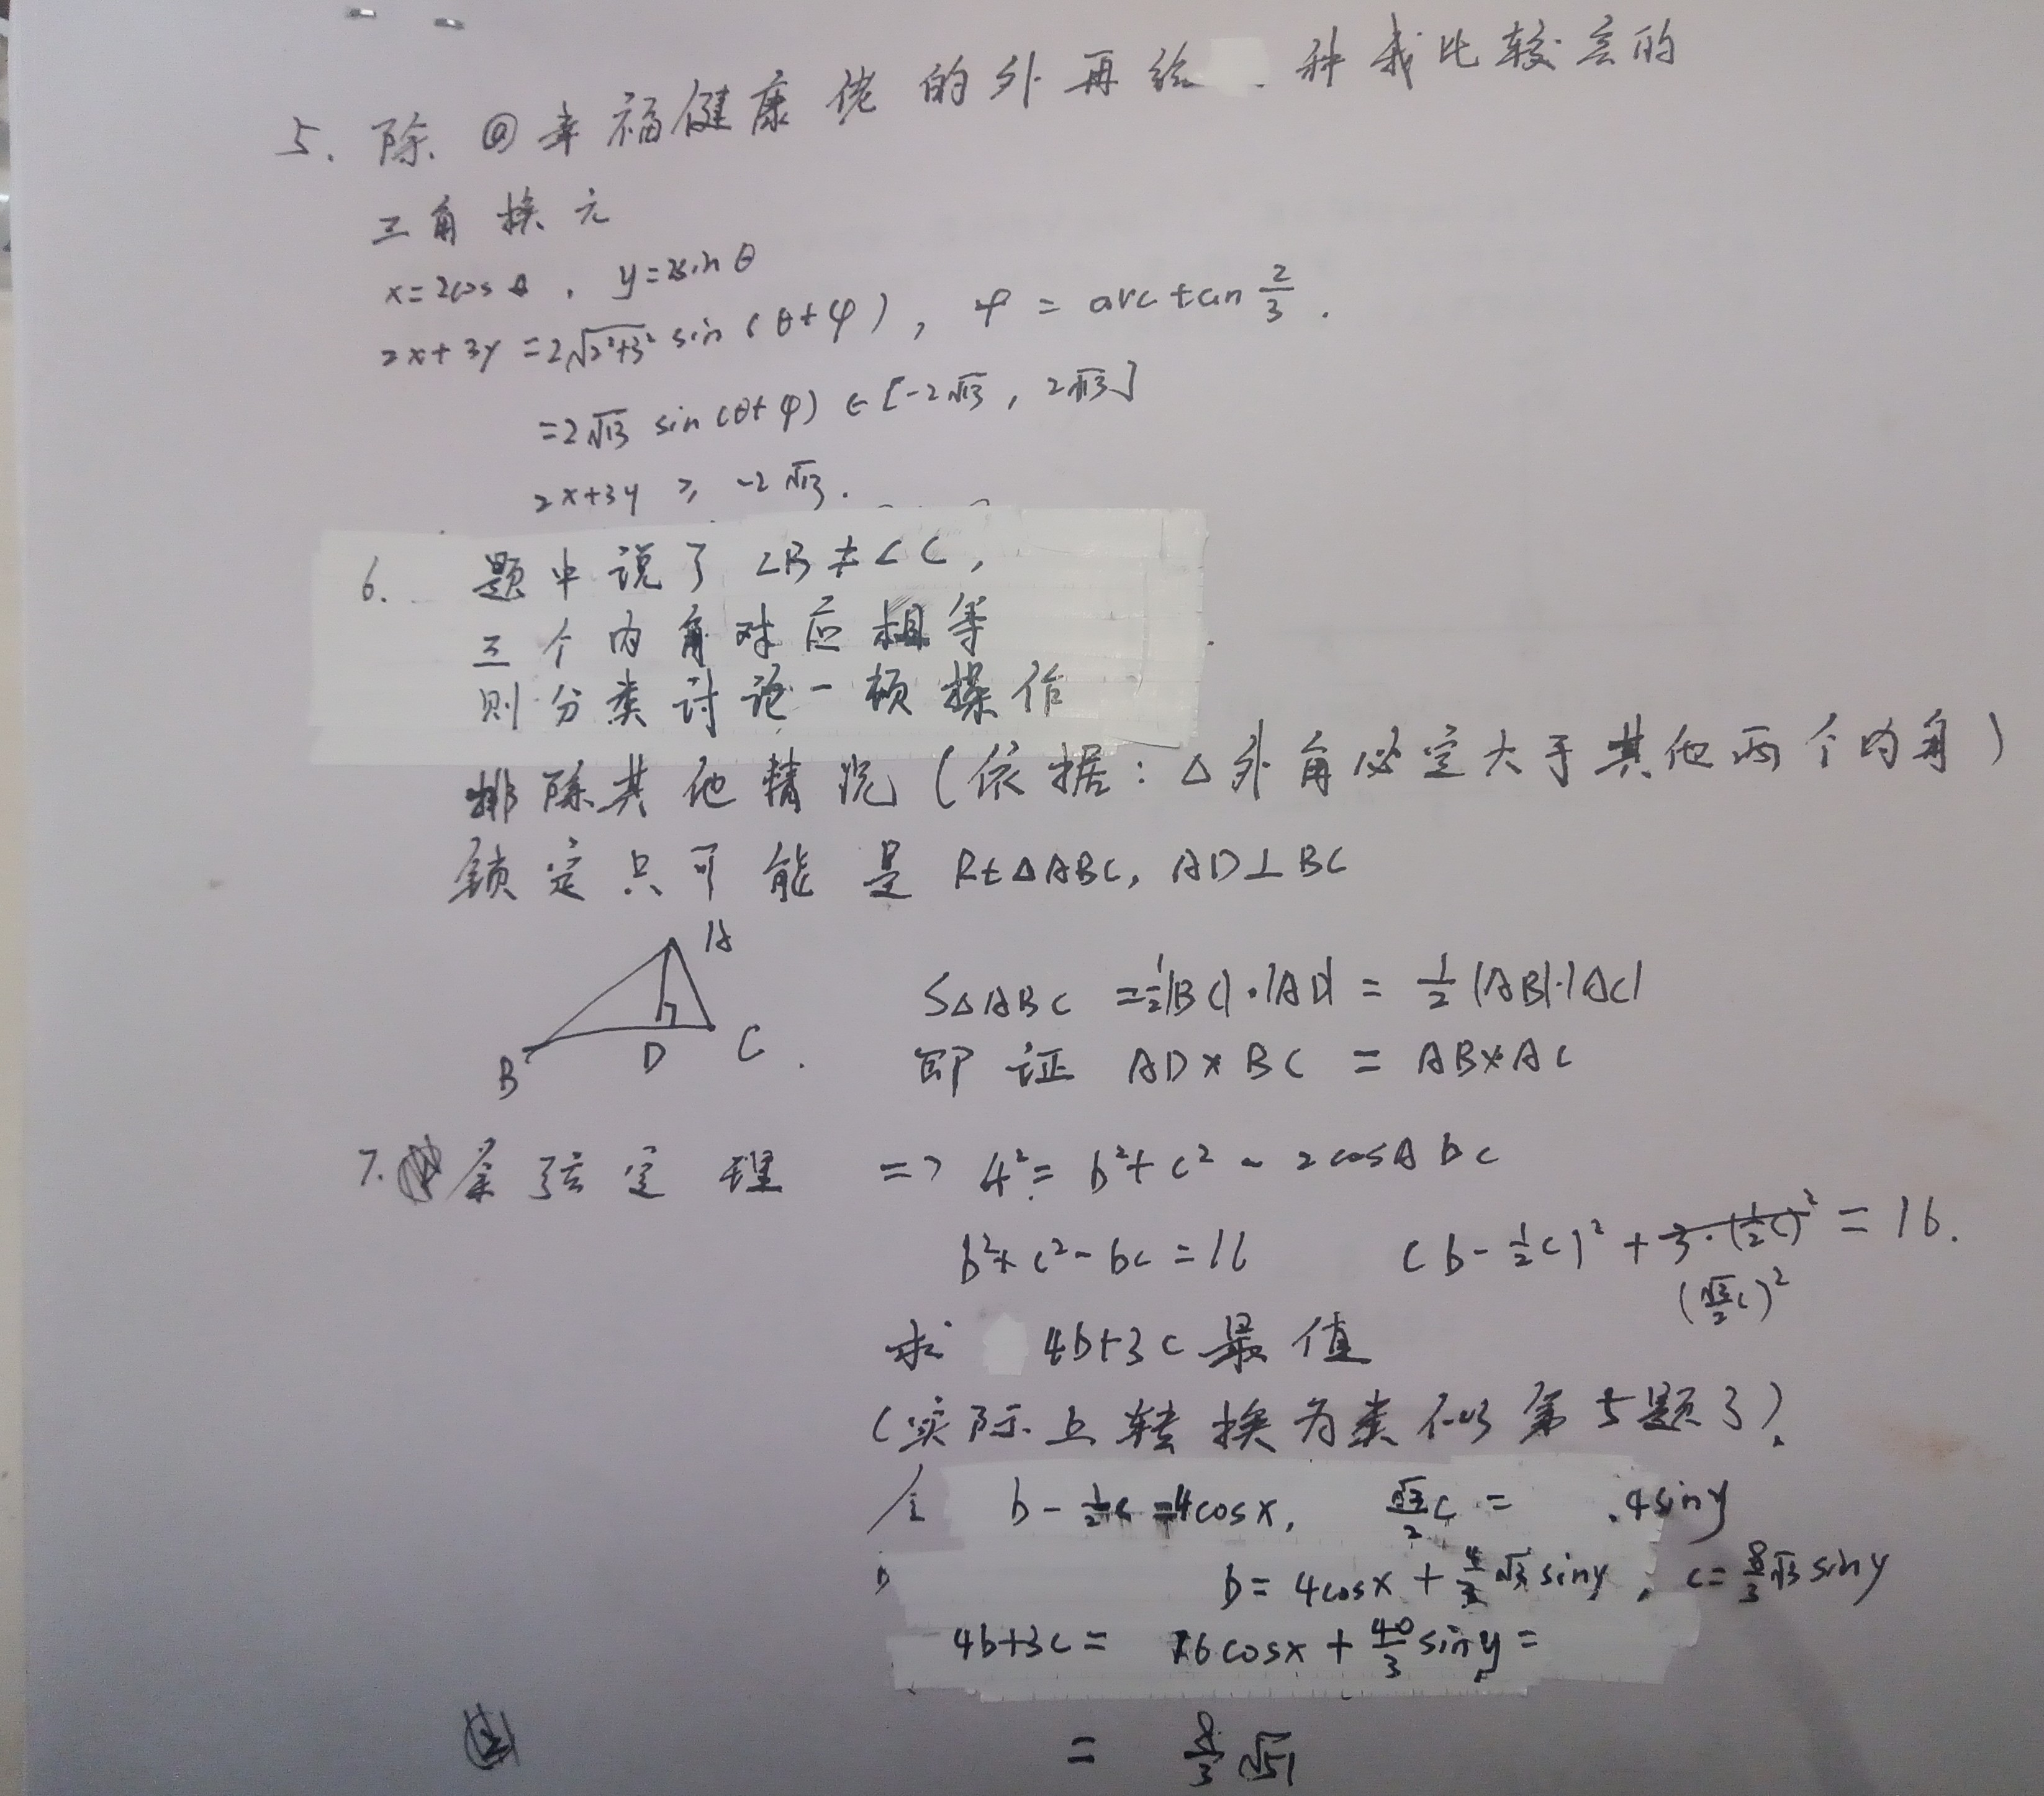 5. 除 @幸福健康佬 的外 再给 种 我比较会的
三角换元
x=2cosθ, y=2sinθ
2x+3y=2√(2²+3²) sin(θ+φ), φ=arctan 2/3.
=2√13 sin(θ+φ)∈[-2√13, 2√13]
2x+3y ≥ -2√13.
6. 题中说了 ∠B≠∠C,
三个内角对应相等
则分类讨论一顿操作
排除其他情况(依据:△外角必定大于其他两个内角)
锁定只可能是Rt△ABC, AD⊥BC
A
B D C
S△ABC =1/2|BC|·|AD| = 1/2|AB|·|AC|
即证 AD×BC = AB×AC
7. 余弦定理 => 4²= b²+c²-2cosA bc
b²+c²-bc=16 (b-1/2c)²+3·(1/2c)²=16.
(√3/2 c)²
求 4b+3c最值
(实际上转换为类似第5题了)
令 b-1/2c=4cosx, √3/2 c= 4siny
b=4cosx+4/3√3siny, c=8/3√3siny
4b+3c= 16cosx+40/3siny=
= 8/3√51